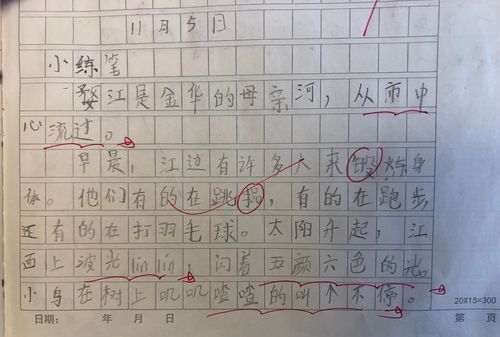 11月5日
小练笔
婺江是金华的母亲河，从市中
心流过。
早晨，江边有许多人来锻炼身
体。他们有的在跳操，有的在跑步
还有的在打羽毛球。太阳升起，江
面上波光粼粼，闪着五颜六色的光。
小鸟在树上叽叽喳喳的叫个不停。
20×15=300
日期： 年 月 日 第 页